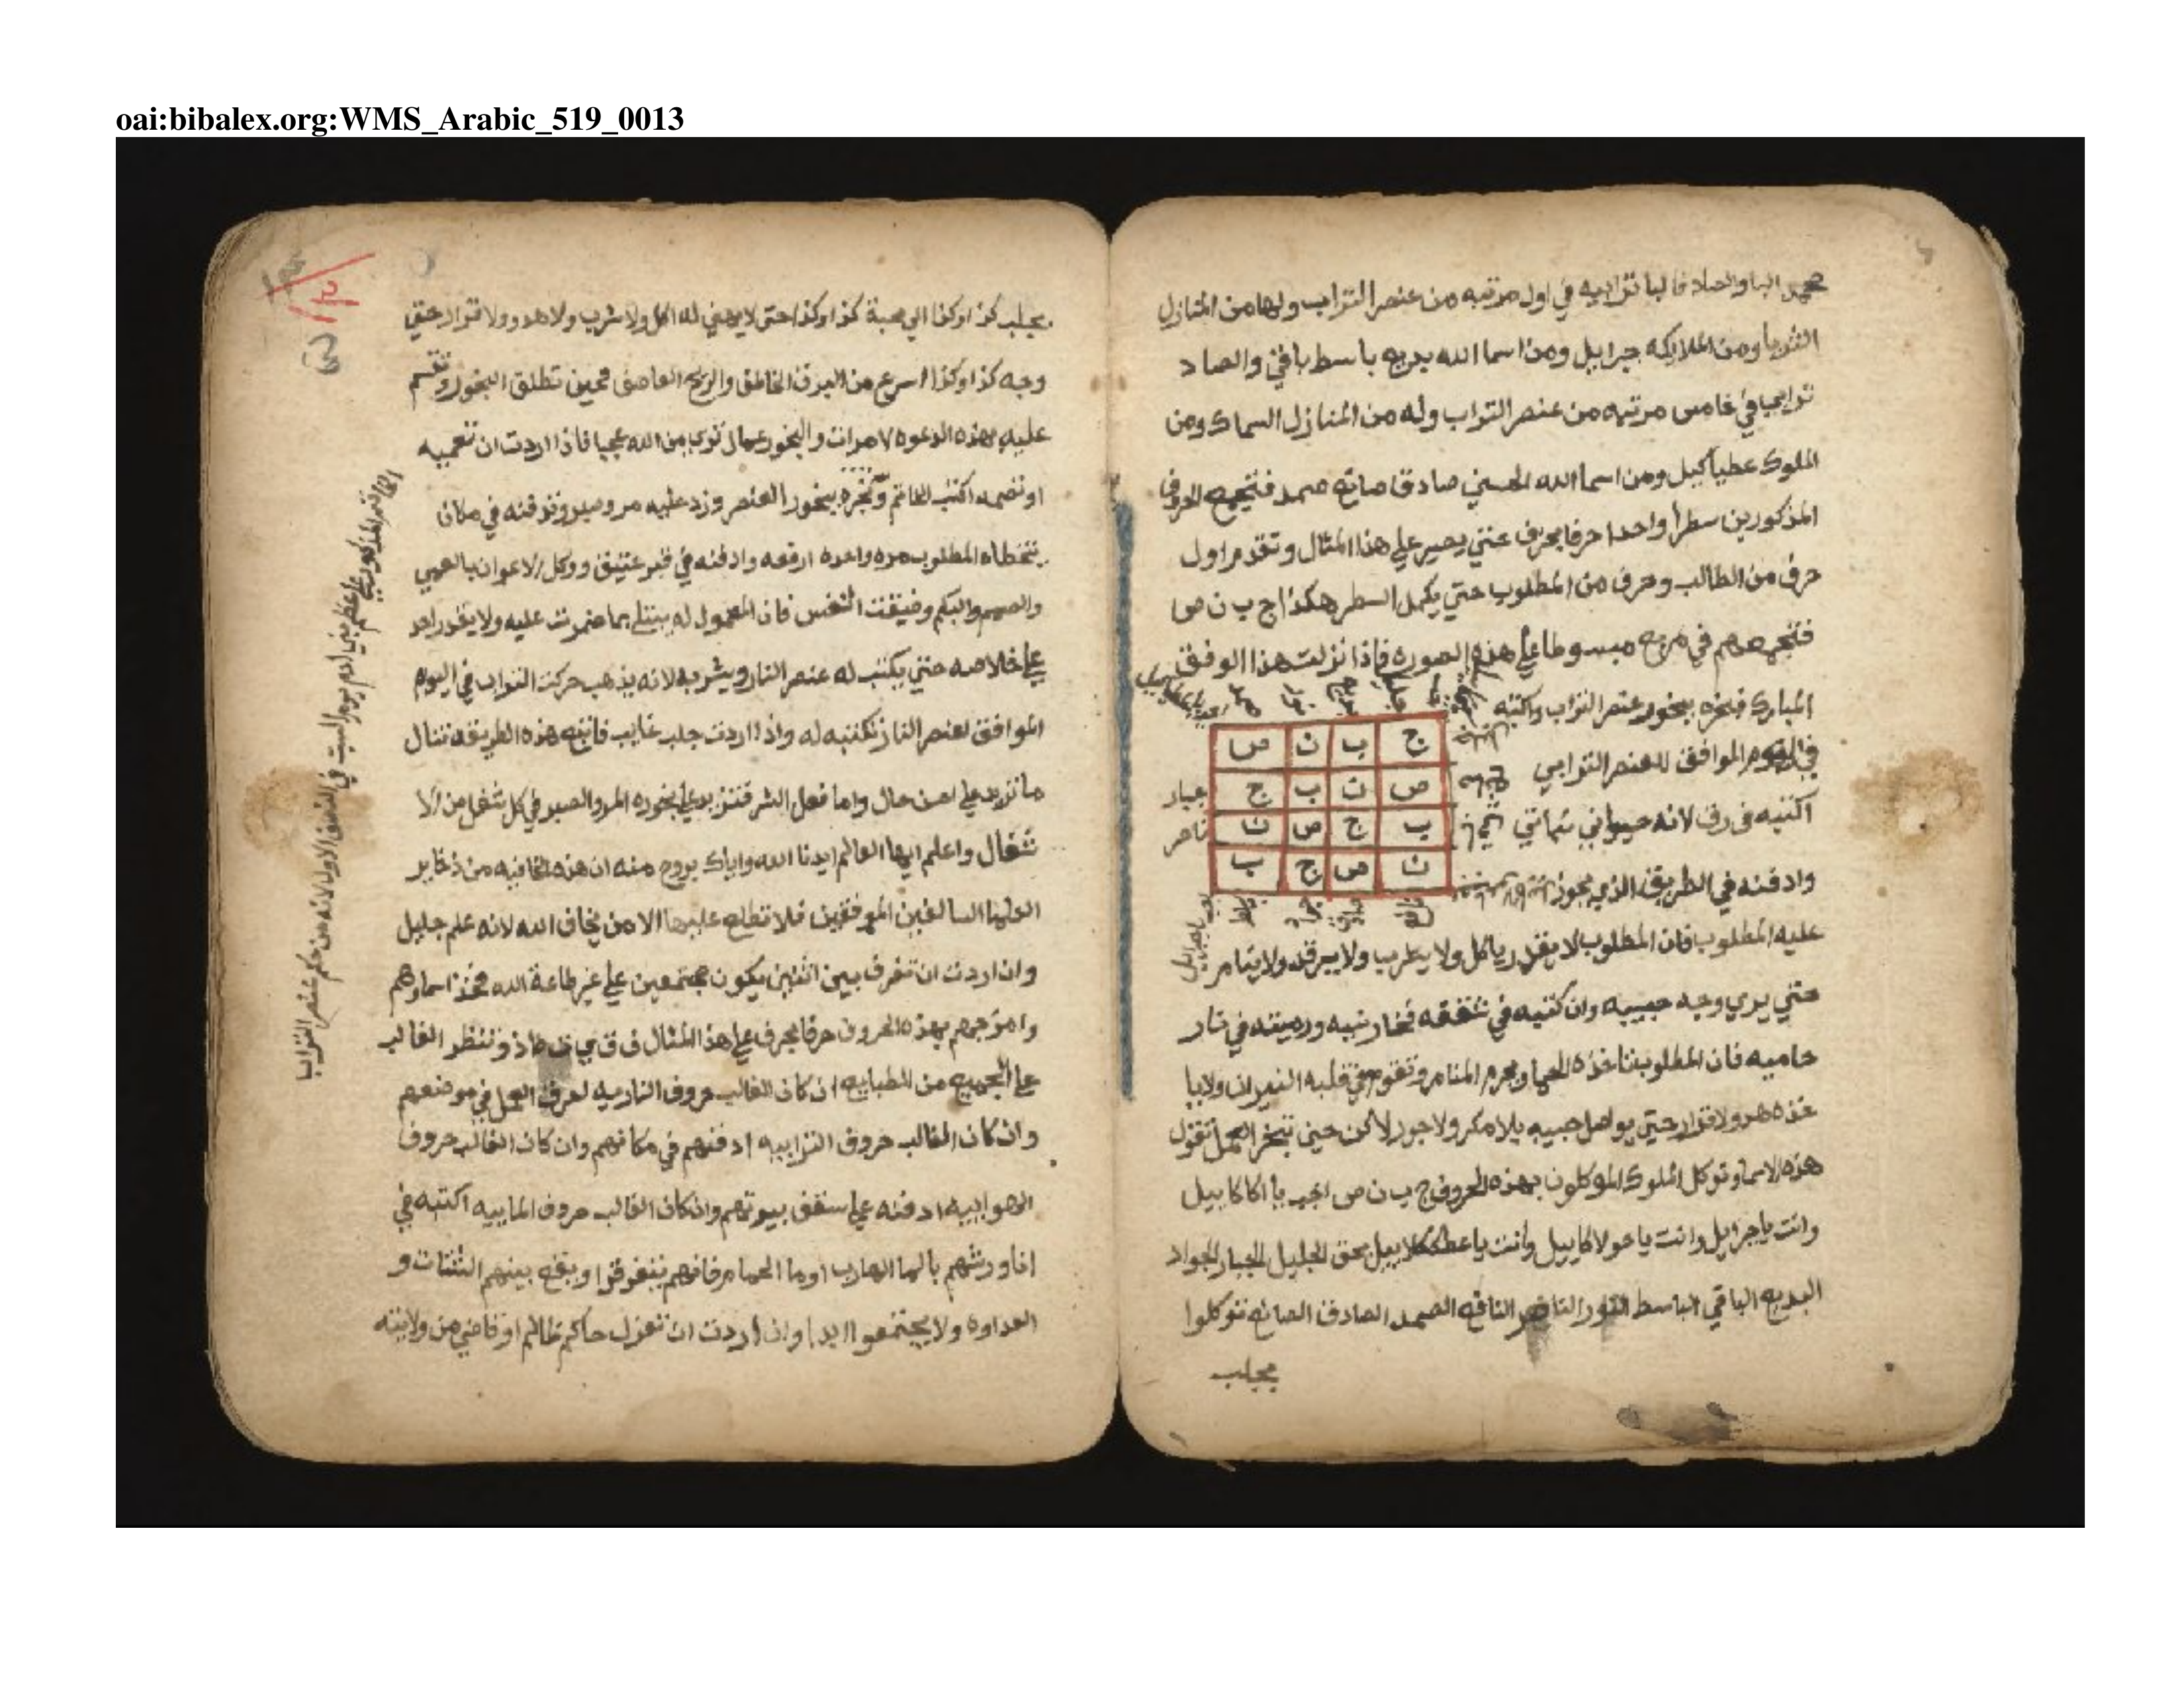 oai:bibalex.org:WMS_Arabic_519_0013
البا والصاد فالبا ترابيه في اول مرتبه من عنصر التراب ولها من المنازل
الثريا ومن الملايكه جبراييل ومن اسما الله بديع باسط باقي والصاد
ترابيا في خامس مرتبه من عنصر التراب وله من المنازل السماك ومن
الملوك ومن اسما الله الحسني صادق صانع صمد فتجمع الحروف
المذكورين سطرا واحدا حرفا بحرف حتي يصير علي هذا المثال وتقدم اول
حرف من الطالب وحرف من المطلوب حتي يكمل السطر هكذا ج ب ن ص
فتجمعهم في مربع مبسوطا علي هذه الصوره فاذا نزلت هذا الوفق
المبارك فبخره ببخور عنصر التراب واكتبه
في اليوم الموافق للعنصر الترابي
اكتبه في رق لانه حيواني
وادفنه في الطريق الذي يجوز
ج ب ن ص
ص ن ب ج
ب ج ص ن
ن ص ج ب
جبار
عليه المطلوب فان المطلوب لا يقدر ياكل ولا يشرب ولا يرقد ولا ينام
حتي يري وجه حبيبه وان كتبه في شقفه فخار نيه ورميته في نار
حاميه فان المطلوب تاخذه الحما ويحرم المنام وتقوم في قلبه النيران ولا يا
خذه هدو ولا قرار حتي يواصل حبيبه بلا مكر ولا جور لاكن حين تبخر العمل تقول
هذه الاسما وتوكل الملوك الموكلون بهذه الحروف ج ب ن ص اجب يا
وانت يا جبراييل وانت يا حولاكاييل وانت يا بحق الجليل الجبار الجواد
البديع الباقي الباسط النور الناصر النافع الصمد الصادق الصانع توكلوا
بجلب
بجلب كذا وكذا الي محبة كذا وكذا حتي لا يهني له اكل ولا شرب ولا هدو ولا قرار حتي
وجه كذا وكذا اسرع من البرق الخاطف والريح العاصف فحين تطلق البخور وتقسم
عليه بهذه الدعوه ٧ مرات والبخور عمال تري من الله عجبا فاذا اردت ان تعميه
او تصمه اكتب الخاتم وتبخره ببخور العنصر وزد عليه مر وصبر وتدفنه في مكان
يتخطاه المطلوب مره واحده ارفعه وادفنه في قبر عتيق ووكل الاعوان بالعمي
والصمم والبكم وضيقت النفس فان المعمول له يبتلي بما ضمرت عليه ولا يقدر احد
علي خلاصه حتي يكتب له عنصر النار ويشربه لانه يذهب حركت التراب في اليوم
الموافق لعنصر النار تكتبه له واذا اردت جلب غايب فاتبع هذه الطريقه تنال
ما تريد علي احسن حال واما فعل الشر فتزيد علي بخوره المر والصبر في كل شغل من الا
شغال واعلم ايها العالم ايدنا الله واياك بروح منه ان هذه الخافيه من ذخاير
العلما السالفين الموفقين فلا تطلع عليها الا من يخاف الله لانه علم جليل
وان اردت ان تفرق بين اثنين يكون مجتمعين علي غير طاعة الله فخذ اسماوهم
وامزجهم بهذه الحروف حرفا بحرف علي هذا المثال وتنظر الغالب
علي الجميع من الطبايع ان كان الغالب حروف الناريه العمل في موضعهم
وان كان الغالب حروف الترابيه ادفنهم في مكانهم وان كان الغالب حروف
الهواييه ادفنه علي سقف بيوتهم وان كان الغالب حروف الماييه اكتبه في
انا ورشهم بالما الهارب او ما الحمام فانهم يتفرقوا ويقع بينهم الشتات و
العداوه ولا يجتمعوا ابدا وان اردت ان تعزل حاكم ظالم او قاضي من ولايته
يوم السبت في الشرق الاول لانه من حكم عنصر التراب